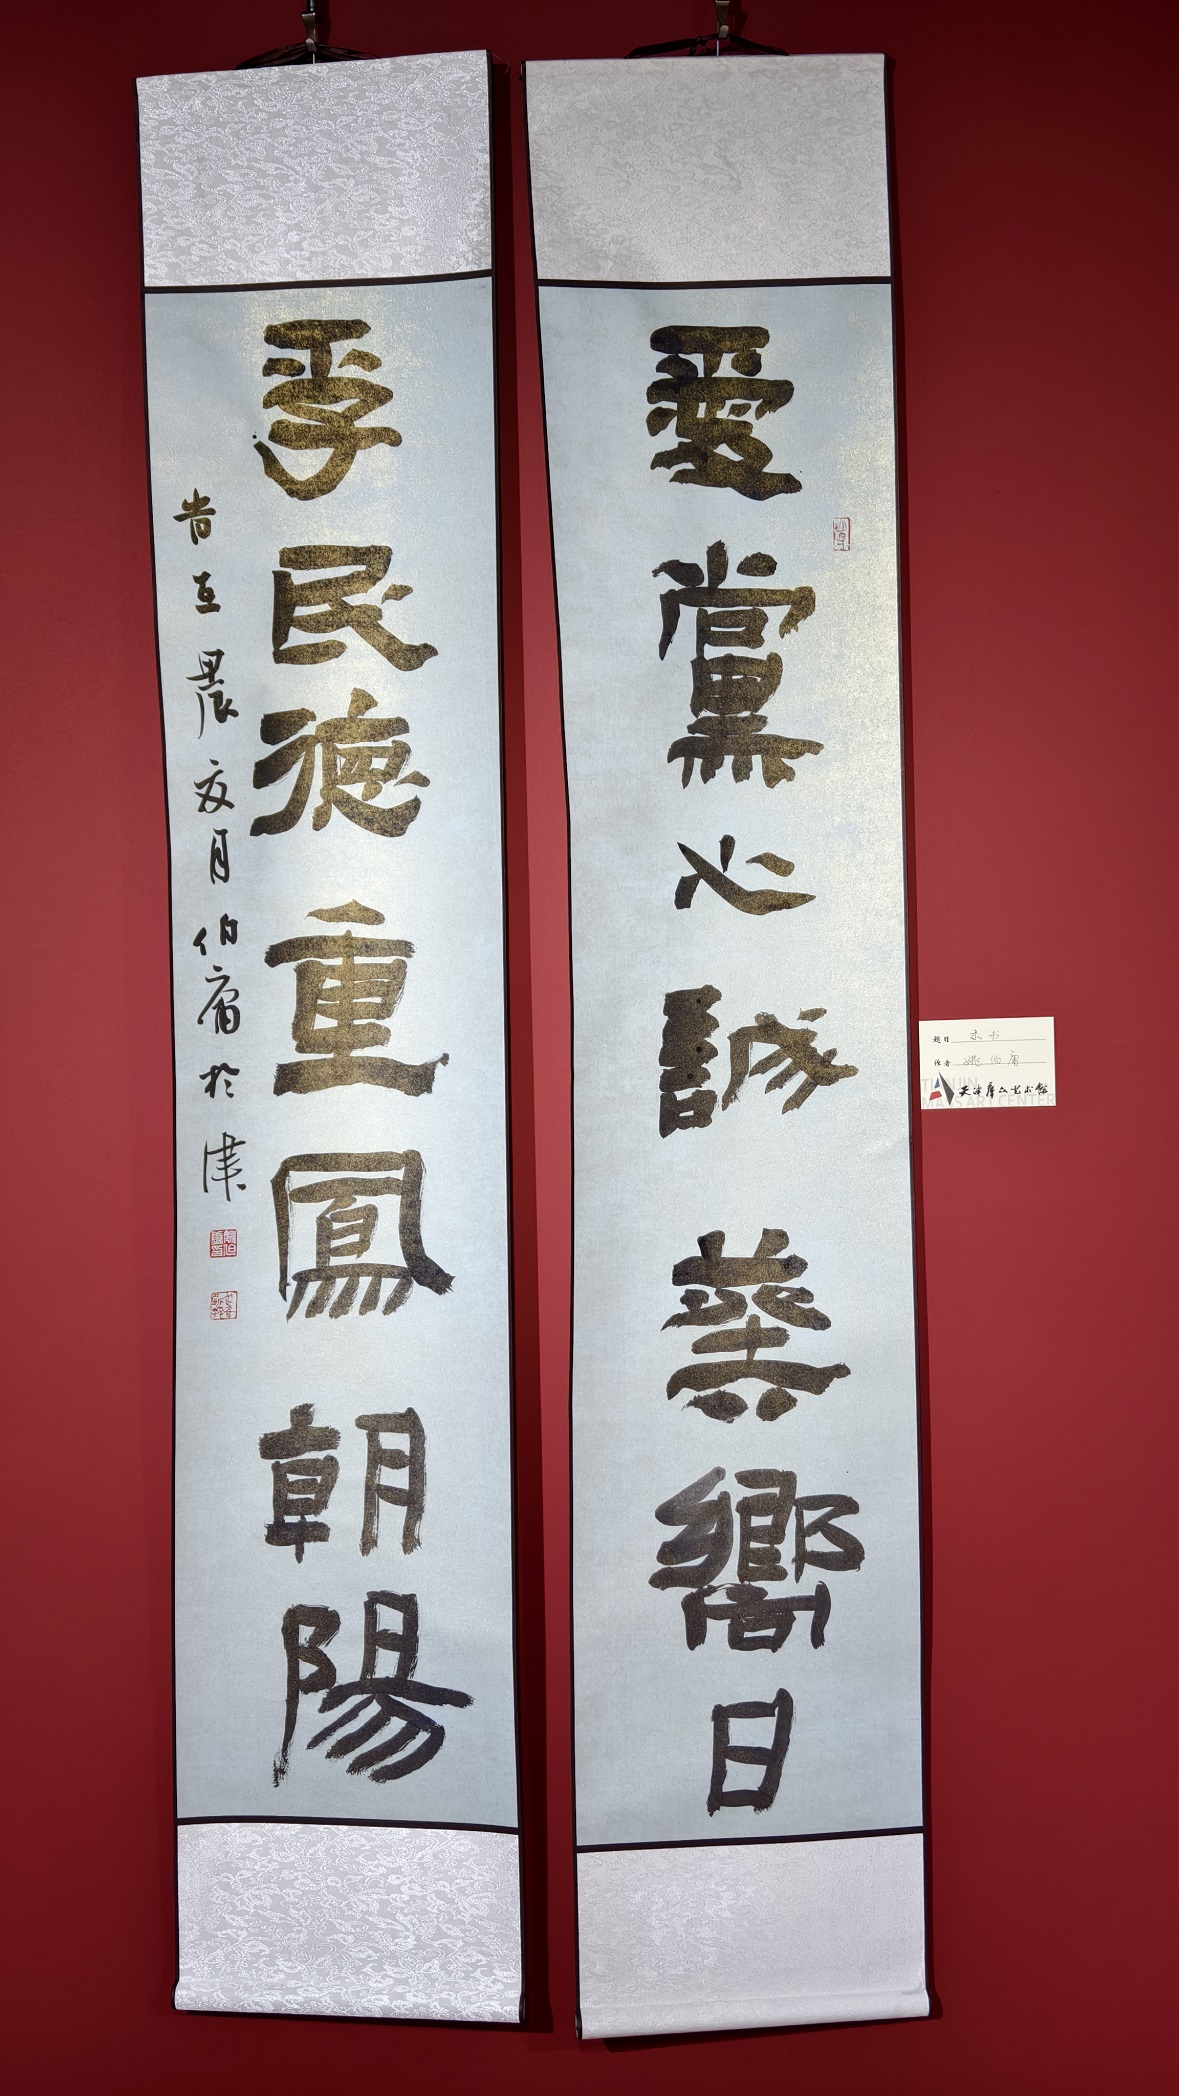 愛黨心誠葵嚮日
孚民德重鳳朝陽
旹在甲辰夏月伯庸於津
题目 隶书
作者 姚伯庸
天津群众艺术馆
TIANJIN
MASS ART CENTER